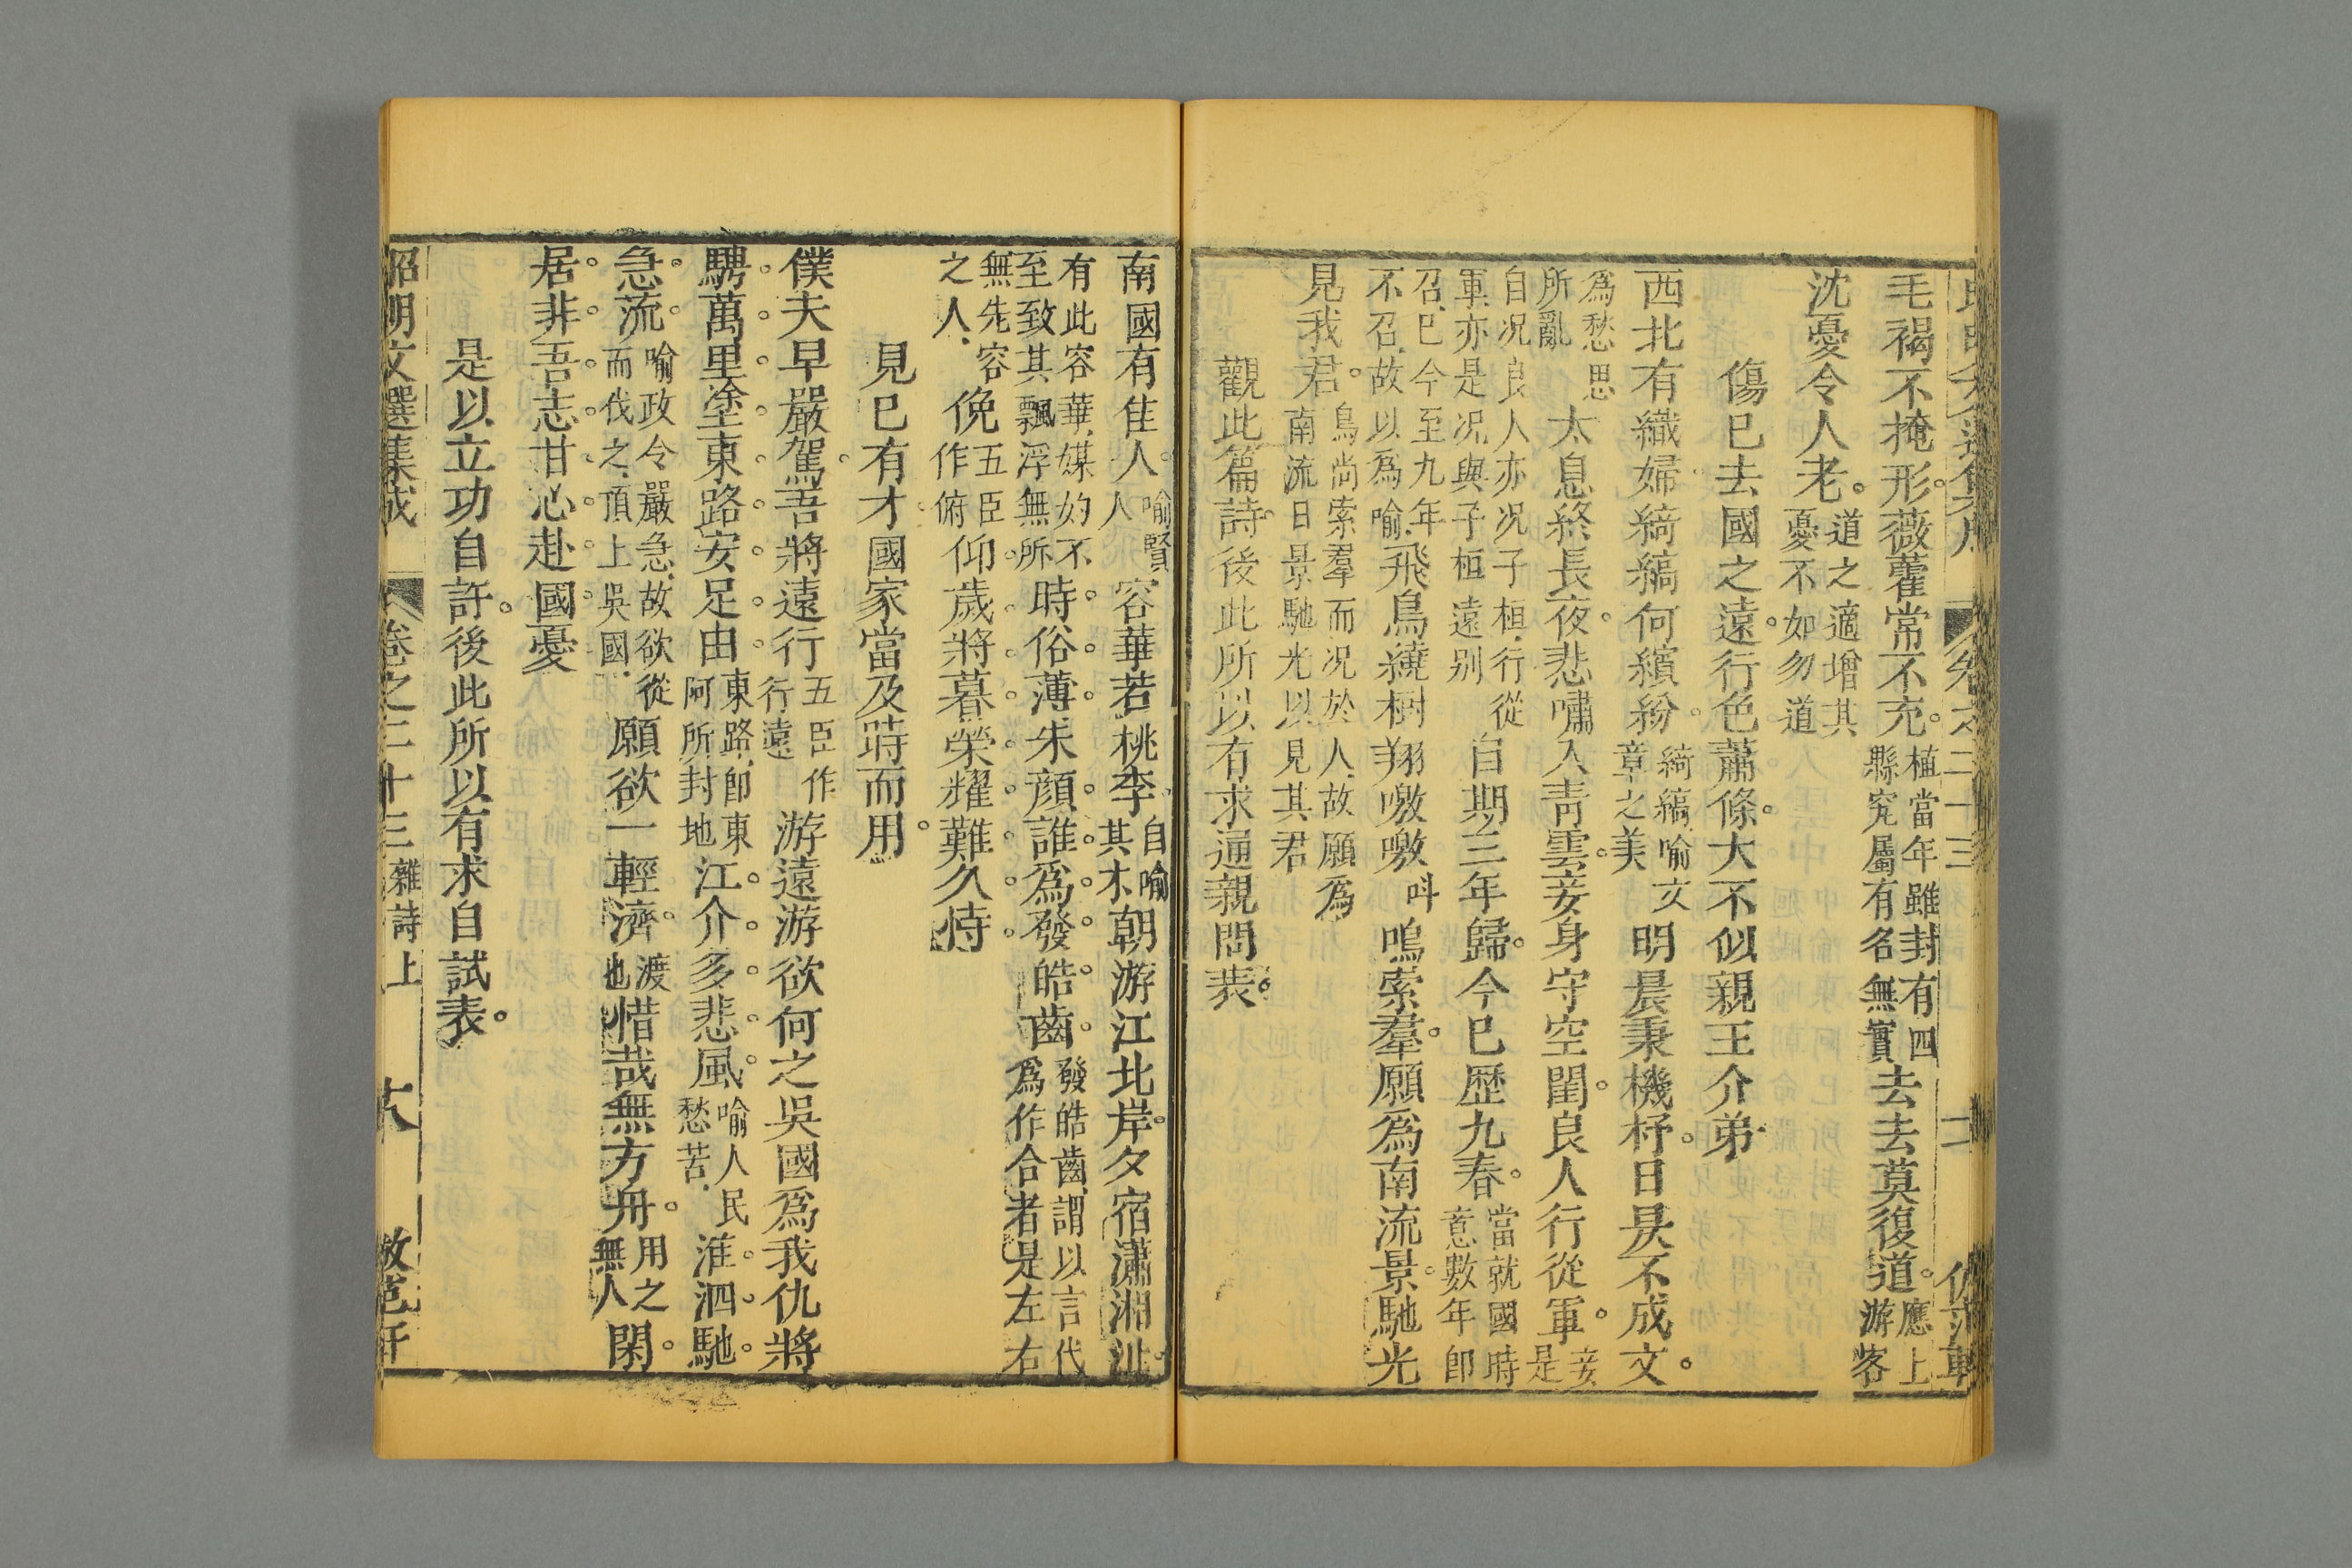 毛褐不掩形。薇藿常不充。植當年雖封有四縣究屬有名無實去去莫復道。應上游客
沈憂令人老。道之適增其憂不如勿道
傷已去國之遠。行色蕭條。大不似親王介弟
西北有織婦綺縞何繽紛。綺縞喻文章之美明晨秉機杼。日昃不成文。
爲愁思所亂太息終長夜。悲嘯入靑雲。妾身守空閨。良人行從軍。妾是
自况良人亦况子桓行從軍亦是况與子桓遠别自期三年歸。今已歷九春。當就國時意數年卽
召已今至九年不召故以爲喻飛鳥繞樹翔噭噭呌鳴索羣。願爲南流景。馳光
見我君。鳥尚索羣而况於人故願爲南流日景馳光以見其君
觀此篇詩。後此所以有求通親問表。
南國有佳人。喻賢人容華若桃李。自喻其才朝游江北岸。夕宿瀟湘沚。
有此容華媒妁不至致其飄浮無所時。俗。薄。朱顏。誰。爲。發。皓。齒。發皓齒謂以言代爲作合者是左右
無先容之人俛五臣作俯仰歲將暮榮耀難久恃
見已有才國家當及時而用。
僕夫早嚴駕。吾將遠行五臣作行遠游遠游欲何之吳國爲我仇將
騁萬里塗東路安足由東路卽東阿所封地江介多悲風喻人民愁苦淮泗馳
急流喻政令嚴急故欲從而伐之頂上吳國願欲一輕濟。渡也惜哉無方舟。用之無人閑
居非吾志甘心赴國憂
是以立功自許。後此所以有求自試表。
昭明文選集成 卷之二十三 雜詩上 十八 倣范軒